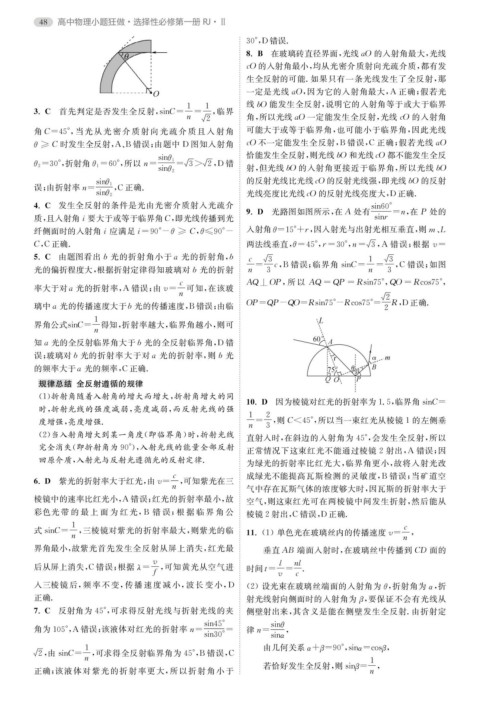 48 高中物理小题狂做·选择性必修第一册 RJ·Ⅱ
θ
O
3. C 首先判定是否发生全反射,sinC=1/n=1/√2,临界
角C=45°,当光从光密介质射向光疏介质且入射角
θ≥C时发生全反射,A、B错误;由题中D图知入射角
θ₂=30°,折射角θ₁=60°,所以n=sinθ₁/sinθ₂=√3>√2,D错
误;由折射率n=sinθ₁/sinθ₂,C正确.
4. C 发生全反射的条件是光由光密介质射入光疏介
质,且入射角i要大于或等于临界角C,即光线传播到光
纤侧面时的入射角i应满足i=90°-θ≥C,θ≤90°-
C,C正确.
5. C 由题图看出b光的折射角小于a光的折射角,b
光的偏折程度大,根据折射定律得知玻璃对b光的折射
率大于对a光的折射率,A错误;由v=c/n可知,在该玻
璃中a光的传播速度大于b光的传播速度,B错误;由临
界角公式sinC=1/n得知,折射率越大,临界角越小,则可
知a光的全反射临界角大于b光的全反射临界角,D错
误;玻璃对b光的折射率大于对a光的折射率,则b光
的频率大于a光的频率,C正确.
规律总结 全反射遵循的规律
(1)折射角随着入射角的增大而增大,折射角增大的同
时,折射光线的强度减弱,亮度减弱,而反射光线的强
度增强,亮度增强.
(2)当入射角增大到某一角度(即临界角)时,折射光线
完全消失(即折射角为90°),入射光线的能量全部反射
回原介质,入射光与反射光遵循光的反射定律.
6. D 紫光的折射率大于红光,由v=c/n,可知紫光在三
棱镜中的速率比红光小,A错误;红光的折射率最小,故
彩色光带的最上面为红光,B错误;根据临界角公
式sinC=1/n,三棱镜对紫光的折射率最大,则紫光的临
界角最小,故紫光首先发生全反射从屏上消失,红光最
后从屏上消失,C错误;根据λ=v/f,可知黄光从空气进
入三棱镜后,频率不变,传播速度减小,波长变小,D
正确.
7. C 反射角为45°,可求得反射光线与折射光线的夹
角为105°,A错误;该液体对红光的折射率n=sin45°/sin30°=
√2,由sinC=1/n,可求得全反射临界角为45°,B错误,C
正确;该液体对紫光的折射率更大,所以折射角小于
30°,D错误.
8. B 在玻璃砖直径界面,光线aO的入射角最大,光线
cO的入射角最小,均从光密介质射向光疏介质,都有发
生全反射的可能.如果只有一条光线发生了全反射,那
一定是光线aO,因为它的入射角最大,A正确;假若光
线bO能发生全反射,说明它的入射角等于或大于临界
角,所以光线aO一定能发生全反射,光线cO的入射角
可能大于或等于临界角,也可能小于临界角,因此光线
cO不一定能发生全反射,B错误,C正确;假若光线aO
恰能发生全反射,则光线bO和光线cO都不能发生全反
射,但光线bO的入射角更接近于临界角,所以光线bO
的反射光线比光线cO的反射光线强,即光线bO的反射
光线亮度比光线cO的反射光线亮度大,D正确.
9. D 光路图如图所示,在A处有sin60°/sinr=n,在P处的
入射角θ=15°+r,因入射光与出射光相互垂直,则m、L
两法线垂直,θ=45°,r=30°,n=√3,A错误;根据v=
c/n=√3/3c,B错误;临界角sinC=1/n=√3/3,C错误;如图
AQ⊥OP,所以AQ=QP=Rsin75°,QO=Rcos75°,
OP=QP-QO=Rsin75°-Rcos75°=√2/2R,D正确.
L
60° A
r
α m
75° θ θ B
Q O P
10. D 因为棱镜对红光的折射率为1.5,临界角sinC=
1/n=2/3,则C<45°,所以当一束红光从棱镜1的左侧垂
直射入时,在斜边的入射角为45°,会发生全反射,所以
正常情况下这束红光不能通过棱镜2射出,A错误;因
为绿光的折射率比红光大,临界角更小,故将入射光改
成绿光不能提高瓦斯检测的灵敏度,B错误;当矿道空
气中存在瓦斯气体的浓度够大时,因瓦斯的折射率大于
空气,则这束红光可在两棱镜中间发生折射,然后能从
棱镜2射出,C错误,D正确.
11. (1) 单色光在玻璃丝内的传播速度v=c/n,
垂直AB端面入射时,在玻璃丝中传播到CD面的
时间t=l/v=nl/c.
(2) 设光束在玻璃丝端面的入射角为θ,折射角为α,折
射光线射向侧面时的入射角为β,要保证不会有光线从
侧壁射出来,其含义是能在侧壁发生全反射.由折射定
律n=sinθ/sinα,
由几何关系α+β=90°,sinα=cosβ,
若恰好发生全反射,则sinβ=1/n,